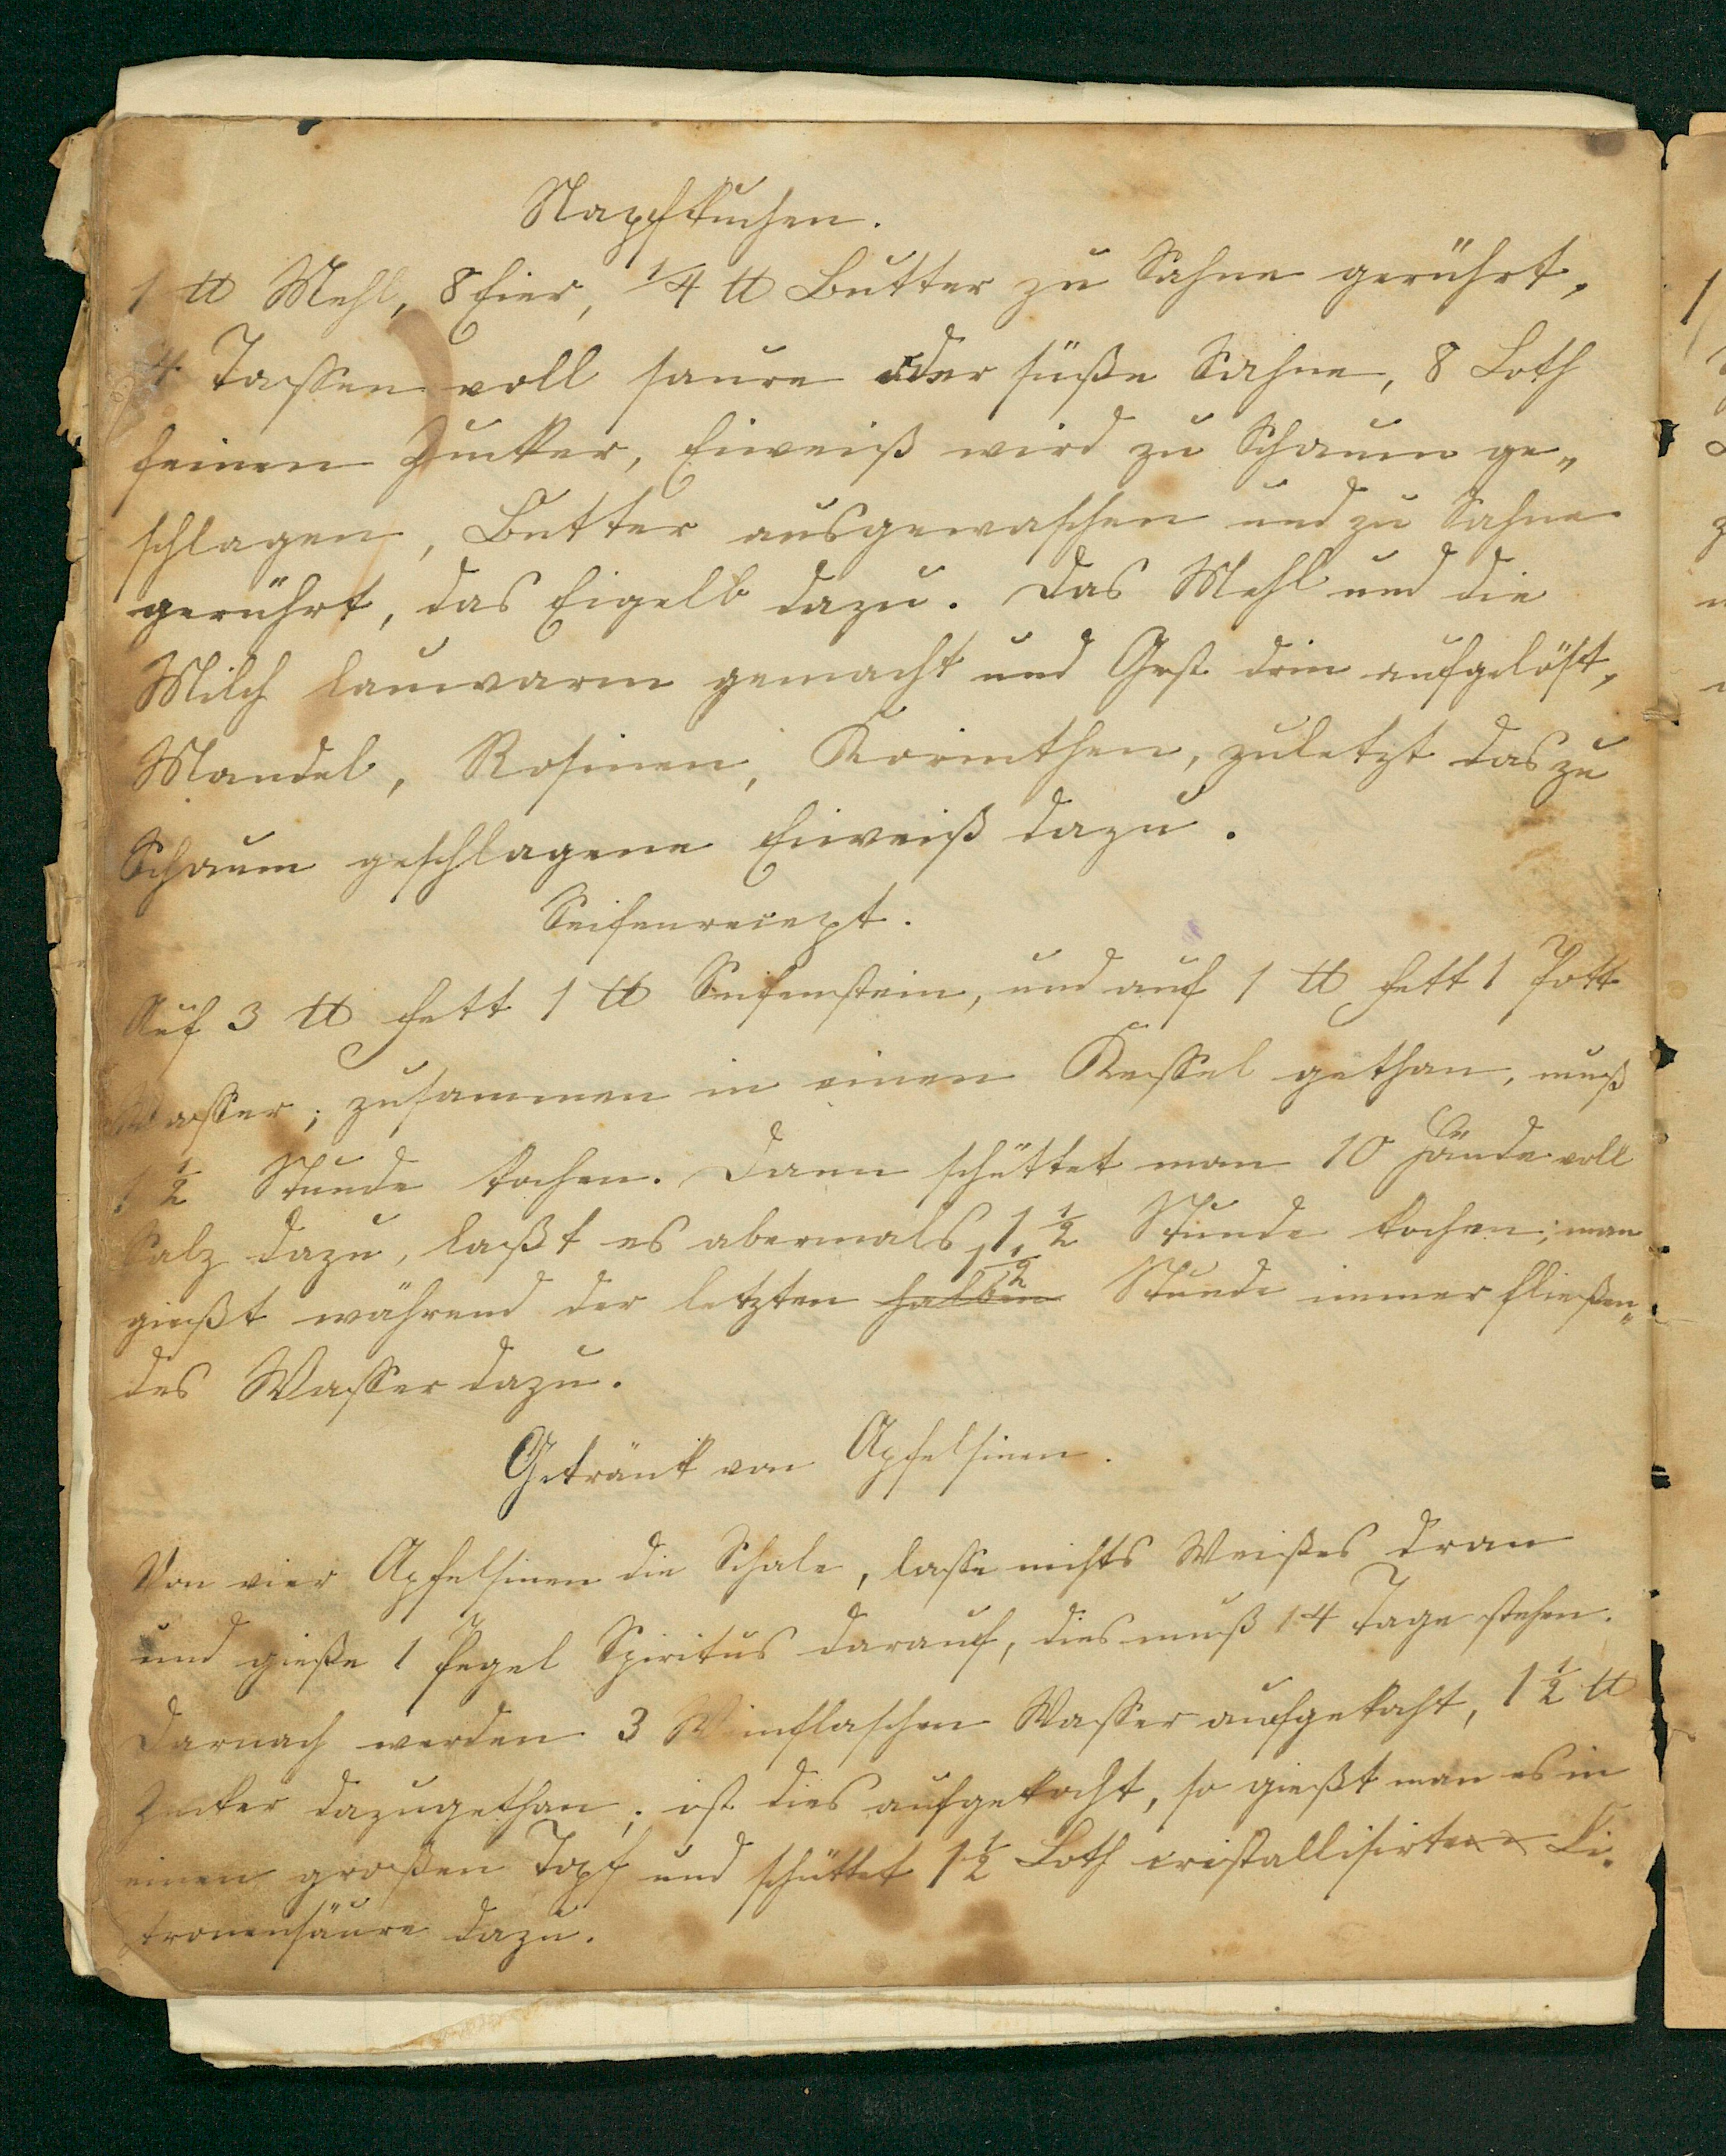 Napfkuchen.
1 ℔ Mehl, 8 Eier, 1/4 ℔ Butter zu Sahne gerührt,
4 Tassen voll saure oder süße Sahne, 8 Loth
feinen Zucker, Eiweiß wird zu Schaum ge„
schlagen, Butter ausgewaschen und zu Sahne
gerührt, das Eigelb dazu. Das Mehl und die
Milch lauwarm gemacht und Gest drin aufgelöst,
Mandel, Rosinen, Korinthen, zuletzt das zu
Schaum geschlagene Eiweiß dazu.
Seifenreciept.
Auf 3 ℔ Fett 1 ℔ Seifenstein, und auf 1 ℔ Fett 1 Pott
Wasser; zusammen in einen Kessel gethan, muß
1 1/2 Stunde kochen. Dann schüttet man 10 Hände voll
Salz dazu, laßt es abermals 1 1/2 Stunde kochen; man
gießt während der letzten halben 1 1/2 Stunde immer fließen„
des Wasser dazu.
Getränk von Apfelsinen.
Von vier Apfelsinen die Schale, lasse nichts Weißes dran
und gieße 1 Pegel Spiritus darauf, dies muß 14 Tage stehen.
Darnach werden 3 Weinflaschen Wasser aufgekocht, 1 1/2 ℔
Zucker dazugethan; ist dies aufgekocht, so gießt man es in
einen großen Topf und schüttet 1 1/2 Loth cristallisirte Ci„
tronensäure dazu.